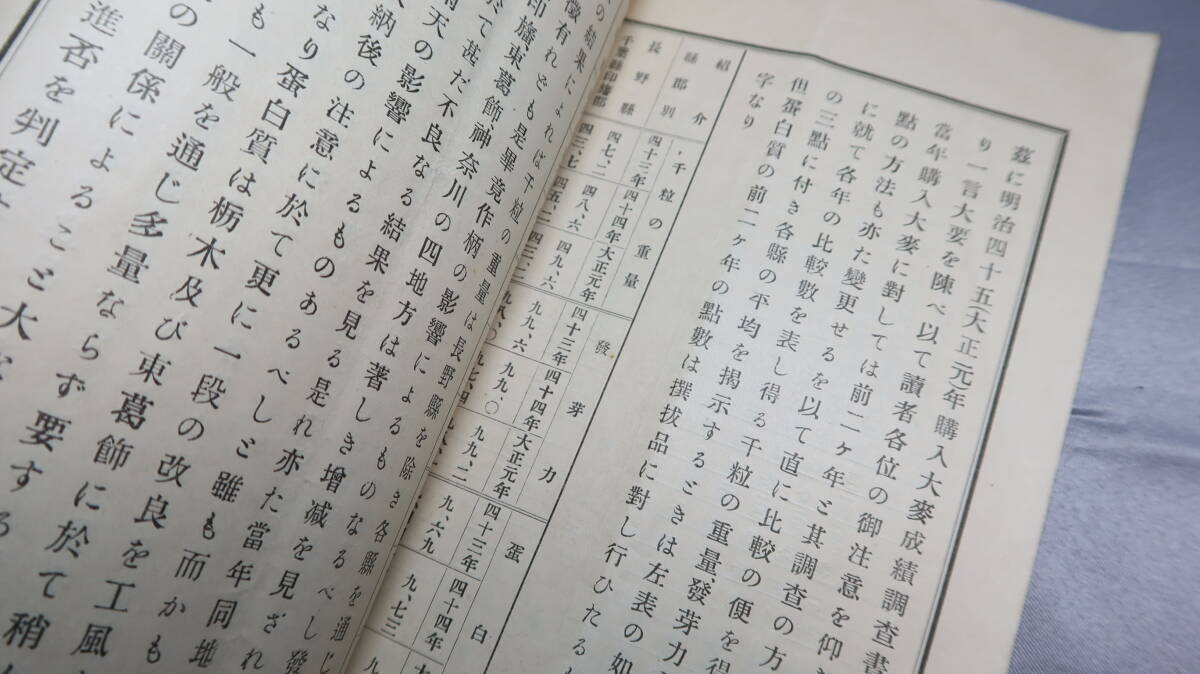 茲に明治四十五(大正元年購入大麥成績調査書
り一言大要を陳べ以て讀者各位の御注意を仰
當年購入大麥に對しては前二ヶ年と其調査の方
點の方法も亦た變更せるを以て直に比較の便を得
に就て各年の比較數を表し得る千粒の重量、發芽力
の三點に付き各縣の平均を掲示するときは左表の如
但蛋白質の前二ヶ年の點數は撰拔品に對し行ひたる
字なり
紹介
縣郡別
長野縣
千葉縣印旛郡
千粒の重量
四十三年 四十四年 大正元年
四七、二 四八、六 四九、六
四三、七 四五、二 四三、二
發芽力
四十三年 四十四年 大正元年
九九、六 九九、〇 九九、二
九八、〇 九七、四
蛋白
四十三年 四十四年
九、六九 九、七三
の結果によれば千粒の重量は長野縣を除き各縣を通じ
徴有れども是畢竟作柄の影響によるものなるべし發
印旛、東葛飾、神奈川の四地方は著しき增減を見ざれ
て甚だ不良なる結果を見る是れ亦た當年同地
天の影響によるものあるべしと雖も而かも
納後の注意に於て更に一段の改良を工風
なり蛋白質は栃木及び東葛飾に於て稍
も一般を通じ多量ならず要する
の關係によること大
進否を判定